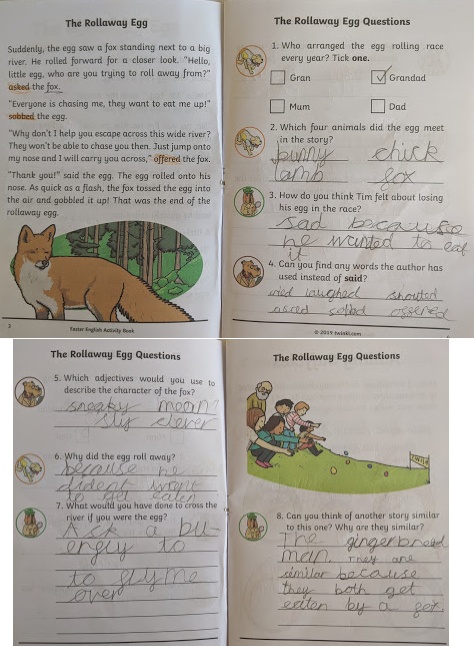 The Rollaway Egg
Suddenly, the egg saw a fox standing next to a big
river. He rolled forward for a closer look. "Hello,
little egg, who are you trying to roll away from?"
asked the fox.
"Everyone is chasing me, they want to eat me up!"
sobbed the egg.
"Why don't I help you escape across this wide river?
They won't be able to chase you then. Just jump onto
my nose and I will carry you across," offered the fox.
"Thank you!" said the egg. The egg rolled onto his
nose. As quick as a flash, the fox tossed the egg into
the air and gobbled it up! That was the end of the
rollaway egg.
2
Easter English Activity Book
The Rollaway Egg Questions
1. Who arranged the egg rolling race
every year? Tick one.
Gran
Grandad
Mum
Dad
2. Which four animals did the egg meet
in the story?
bunny chick
lamb fox
3. How do you think Tim felt about losing
his egg in the race?
sad because
he wanted to eat
it
4. Can you find any words the author has
used instead of said?
cried laughed shouted
asked sobbed offered
© 2019 twinkl.com
The Rollaway Egg Questions
5. Which adjectives would you use to
describe the character of the fox?
sneaky mean
sly clever
6. Why did the egg roll away?
because he
want
to get eaten
7. What would you have done to cross the
river if you were the egg?
Ask a
to
to fly me
over
The Rollaway Egg Questions
8. Can you think of another story similar
to this one? Why are they similar?
The gingerbread
man. They are
similar because
they both get
eaten by a fox.